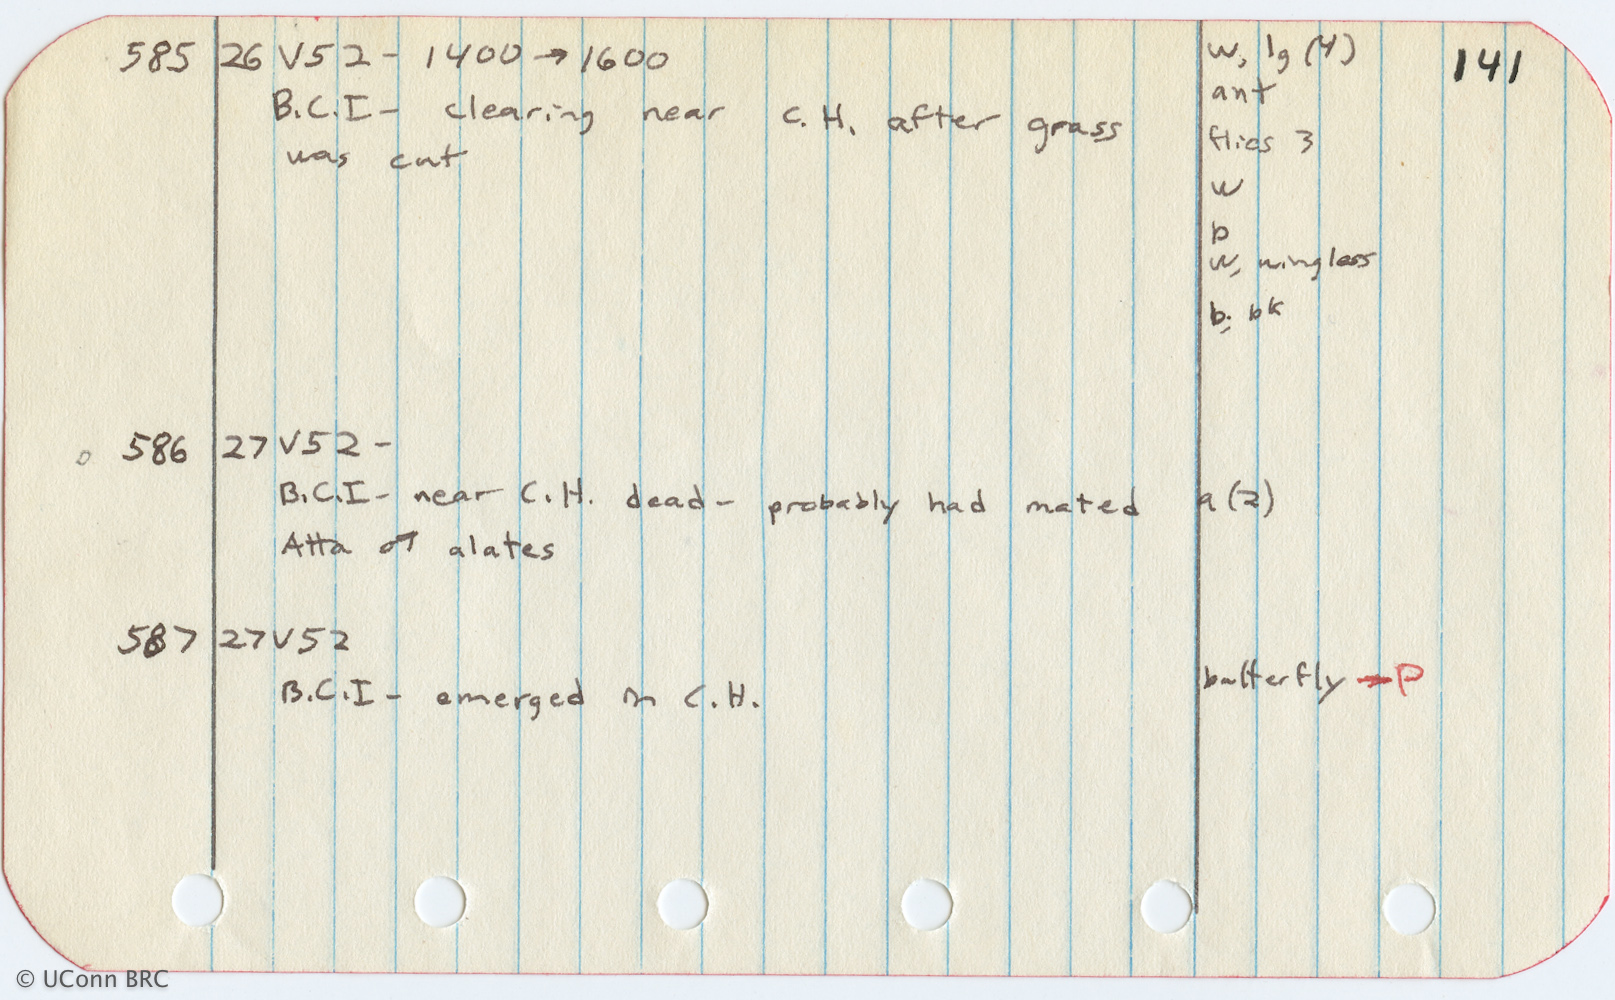 141
585 26 V 52 - 1400 → 1600
B.C.I - clearing near C.H. after grass
was cut
w, lg (4)
ant
flies 3
w
b
w, wingless
b, bk
586 27 V 52 -
B.C.I - near C.H. dead - probably had mated
Atta ♂ alates
a (2)
587 27 V 52
B.C.I - emerged in C.H.
butterfly → P
© UConn BRC